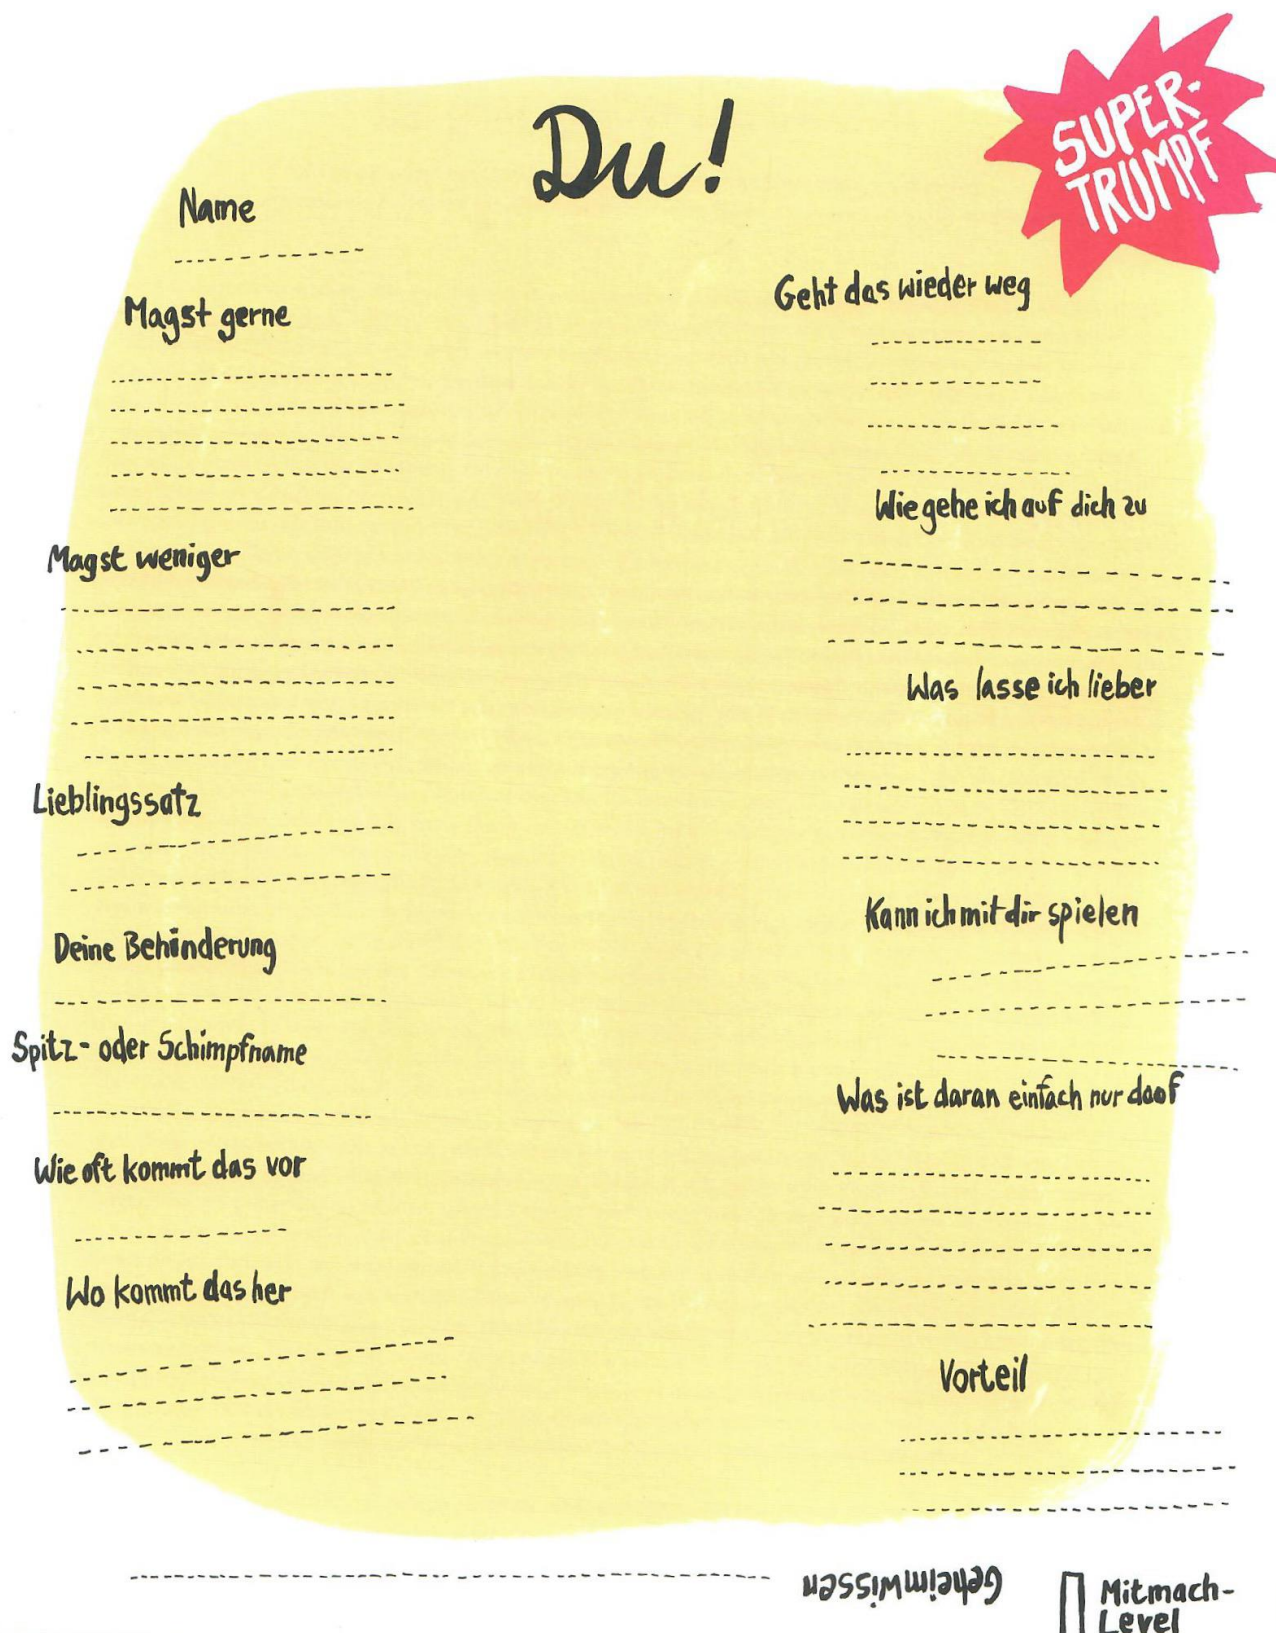 Du!
SUPER-
TRUMPF
Name
Magst gerne
Magst weniger
Lieblingssatz
Deine Behinderung
Spitz- oder Schimpfname
Wie oft kommt das vor
Wo kommt das her
Geht das wieder weg
Wie gehe ich auf dich zu
Was lasse ich lieber
Kann ich mit dir spielen
Was ist daran einfach nur doof
Vorteil
Geheimwissen
Mitmach-
Level